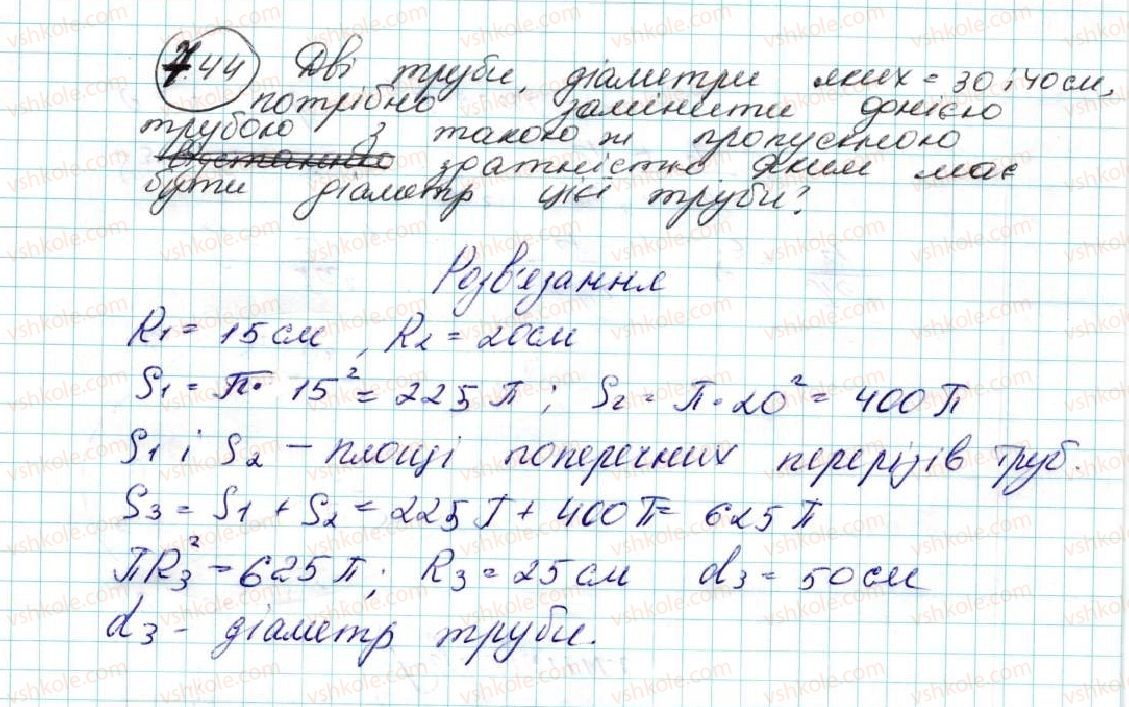 7.44 Дві труби, діаметри яких = 30 і 40 см,
потрібно замінити однією
трубою з такою ж пропускною
зратністю яким має
бути діаметр цієї труби?
Розв'язання
R1 = 15 см, R2 = 20 см
S1 = π · 15² = 225 π; S2 = π · 20² = 400 π
S1 і S2 – площі поперечних перерізів труб.
S3 = S1 + S2 = 225 π + 400 π = 625 π
πR3² = 625 π; R3 = 25 см d3 = 50 см
d3 – діаметр труби.